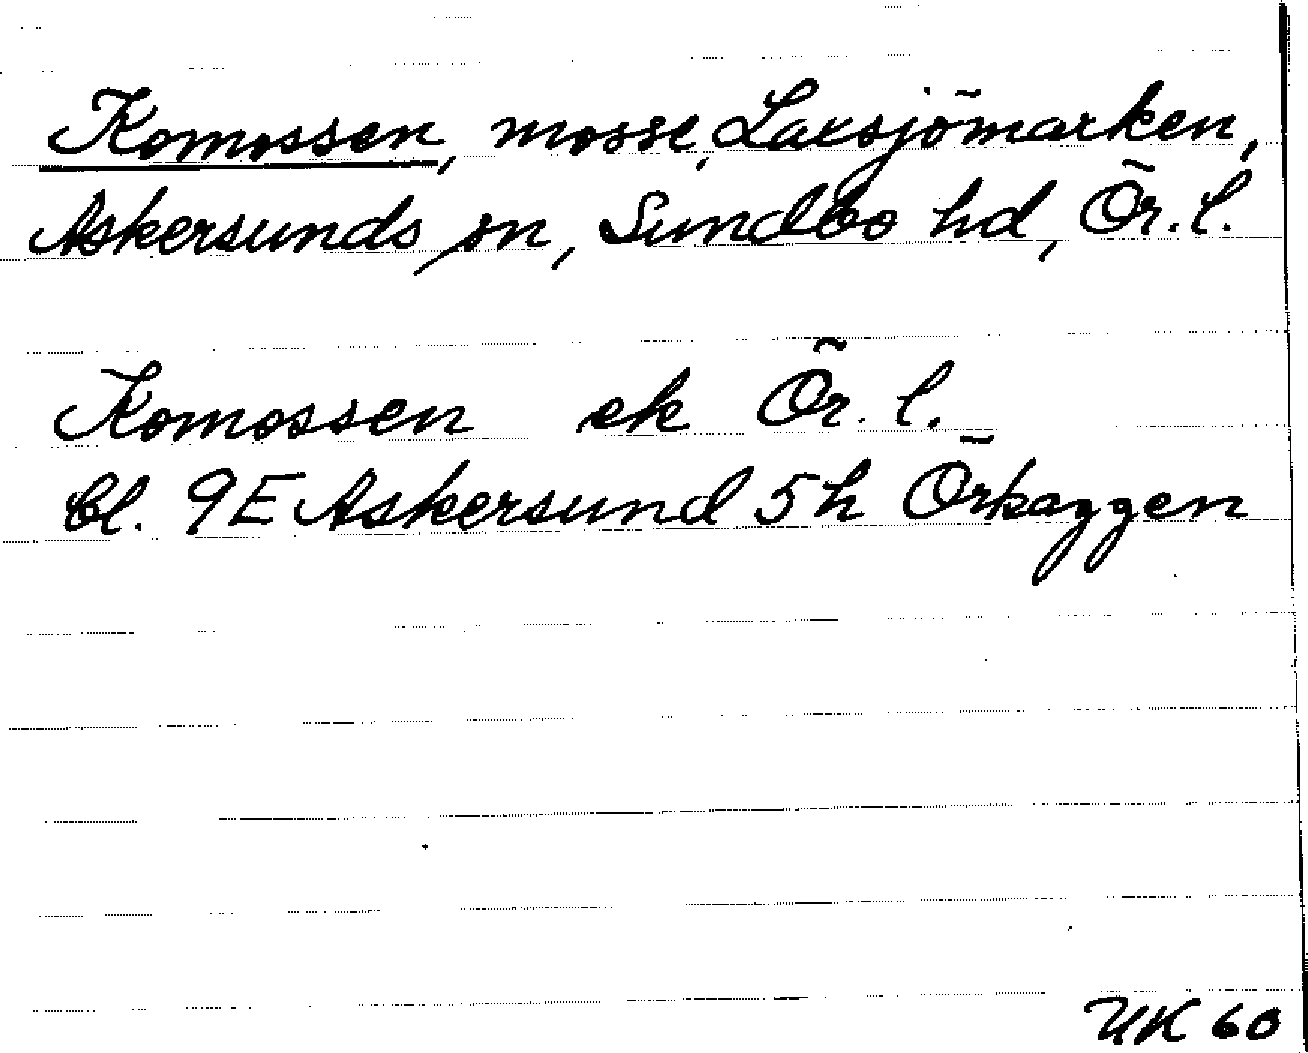 Komossen, mosse, Laxsjömarken,
Askersunds sn, Sundbo hd, Ör. l.
Komossen ek Ör. l.
bl. 9E Askersund 5h Örkaggen
UK 60